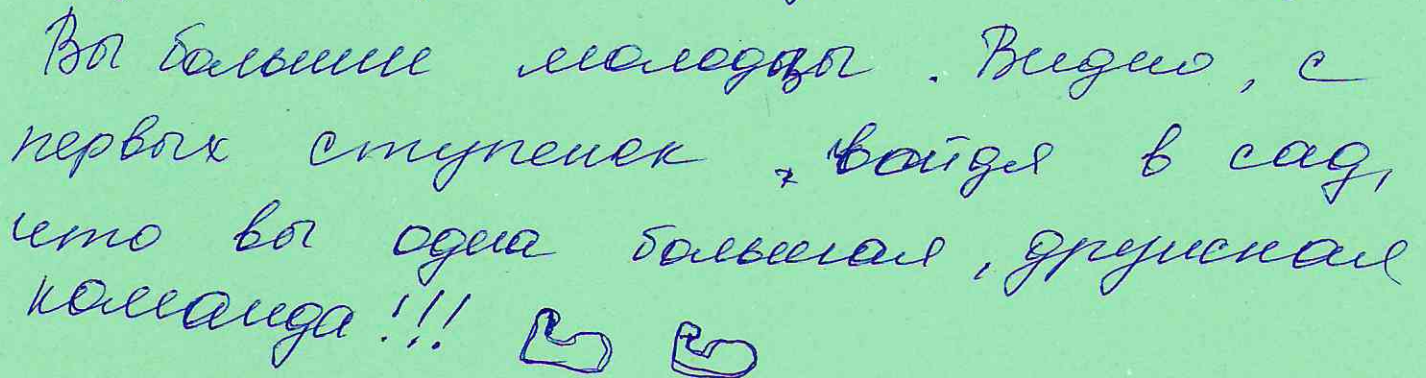 Вы большие молодцы. Видно, с
первых ступенек, войдя в сад,
что вы одна большая, дружная
команда!!!